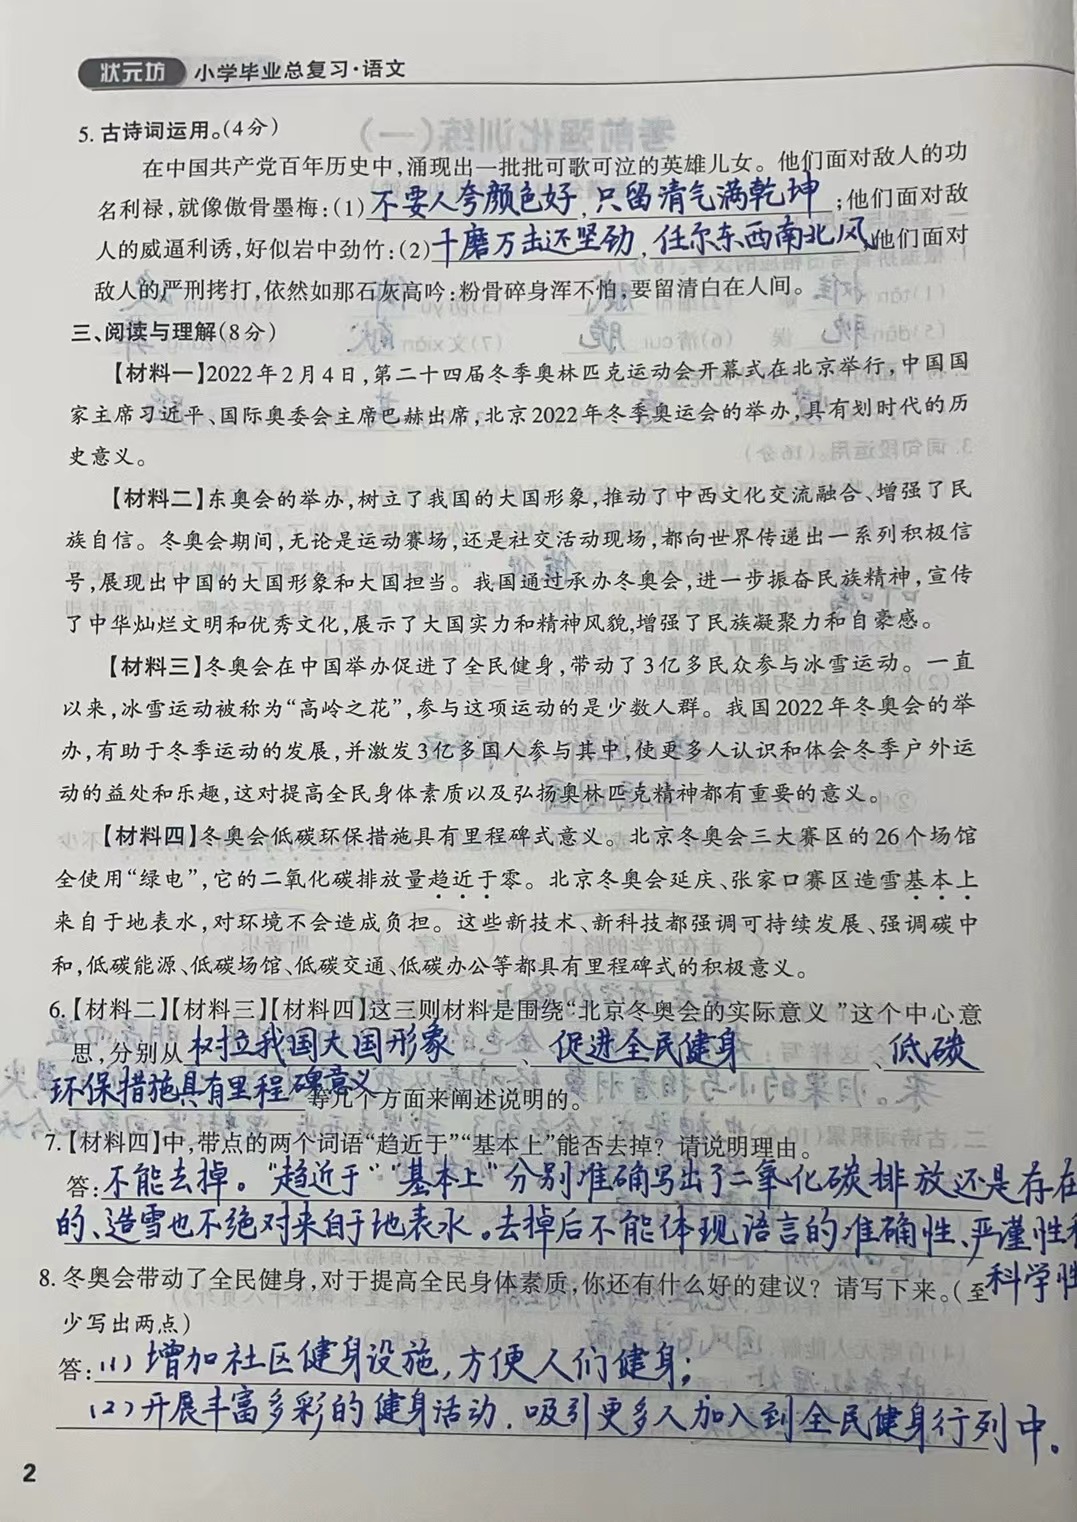 状元坊 小学毕业总复习·语文
5. 古诗词运用。(4分)
在中国共产党百年历史中,涌现出一批批可歌可泣的英雄儿女。他们面对敌人的功
名利禄,就像傲骨墨梅:(1)不要人夸颜色好,只留清气满乾坤;他们面对敌
人的威逼利诱,好似岩中劲竹:(2)千磨万击还坚劲,任尔东西南北风,他们面对
敌人的严刑拷打,依然如那石灰高吟:粉骨碎身浑不怕,要留清白在人间。
三、阅读与理解(8分)
【材料一】2022年2月4日,第二十四届冬季奥林匹克运动会开幕式在北京举行,中国国
家主席习近平、国际奥委会主席巴赫出席,北京2022年冬季奥运会的举办,具有划时代的历
史意义。
【材料二】东奥会的举办,树立了我国的大国形象,推动了中西文化交流融合、增强了民
族自信。冬奥会期间,无论是运动赛场,还是社交活动现场,都向世界传递出一系列积极信
号,展现出中国的大国形象和大国担当。我国通过承办冬奥会,进一步振奋民族精神,宣传
了中华灿烂文明和优秀文化,展示了大国实力和精神风貌,增强了民族凝聚力和自豪感。
【材料三】冬奥会在中国举办促进了全民健身,带动了3亿多民众参与冰雪运动。一直
以来,冰雪运动被称为“高岭之花”,参与这项运动的是少数人群。我国2022年冬奥会的举
办,有助于冬季运动的发展,并激发3亿多国人参与其中,使更多人认识和体会冬季户外运
动的益处和乐趣,这对提高全民身体素质以及弘扬奥林匹克精神都有重要的意义。
【材料四】冬奥会低碳环保措施具有里程碑式意义。北京冬奥会三大赛区的26个场馆
全使用“绿电”,它的二氧化碳排放量趋近于零。北京冬奥会延庆、张家口赛区造雪基本上
来自于地表水,对环境不会造成负担。这些新技术、新科技都强调可持续发展、强调碳中
和,低碳能源、低碳场馆、低碳交通、低碳办公等都具有里程碑式的积极意义。
6.【材料二】【材料三】【材料四】这三则材料是围绕“北京冬奥会的实际意义”这个中心意
思,分别从树立我国大国形象、促进全民健身、低碳
环保措施具有里程碑意义等几个方面来阐述说明的。
7.【材料四】中,带点的两个词语“趋近于”“基本上”能否去掉?请说明理由。
答:不能去掉。“趋近于”“基本上”分别准确写出了二氧化碳排放还是存在
的、造雪也不绝对来自于地表水。去掉后不能体现语言的准确性、严谨性和
科学性
8. 冬奥会带动了全民健身,对于提高全民身体素质,你还有什么好的建议?请写下来。(至
少写出两点)
答:(1)增加社区健身设施,方便人们健身;
(2)开展丰富多彩的健身活动,吸引更多人加入到全民健身行列中。
2